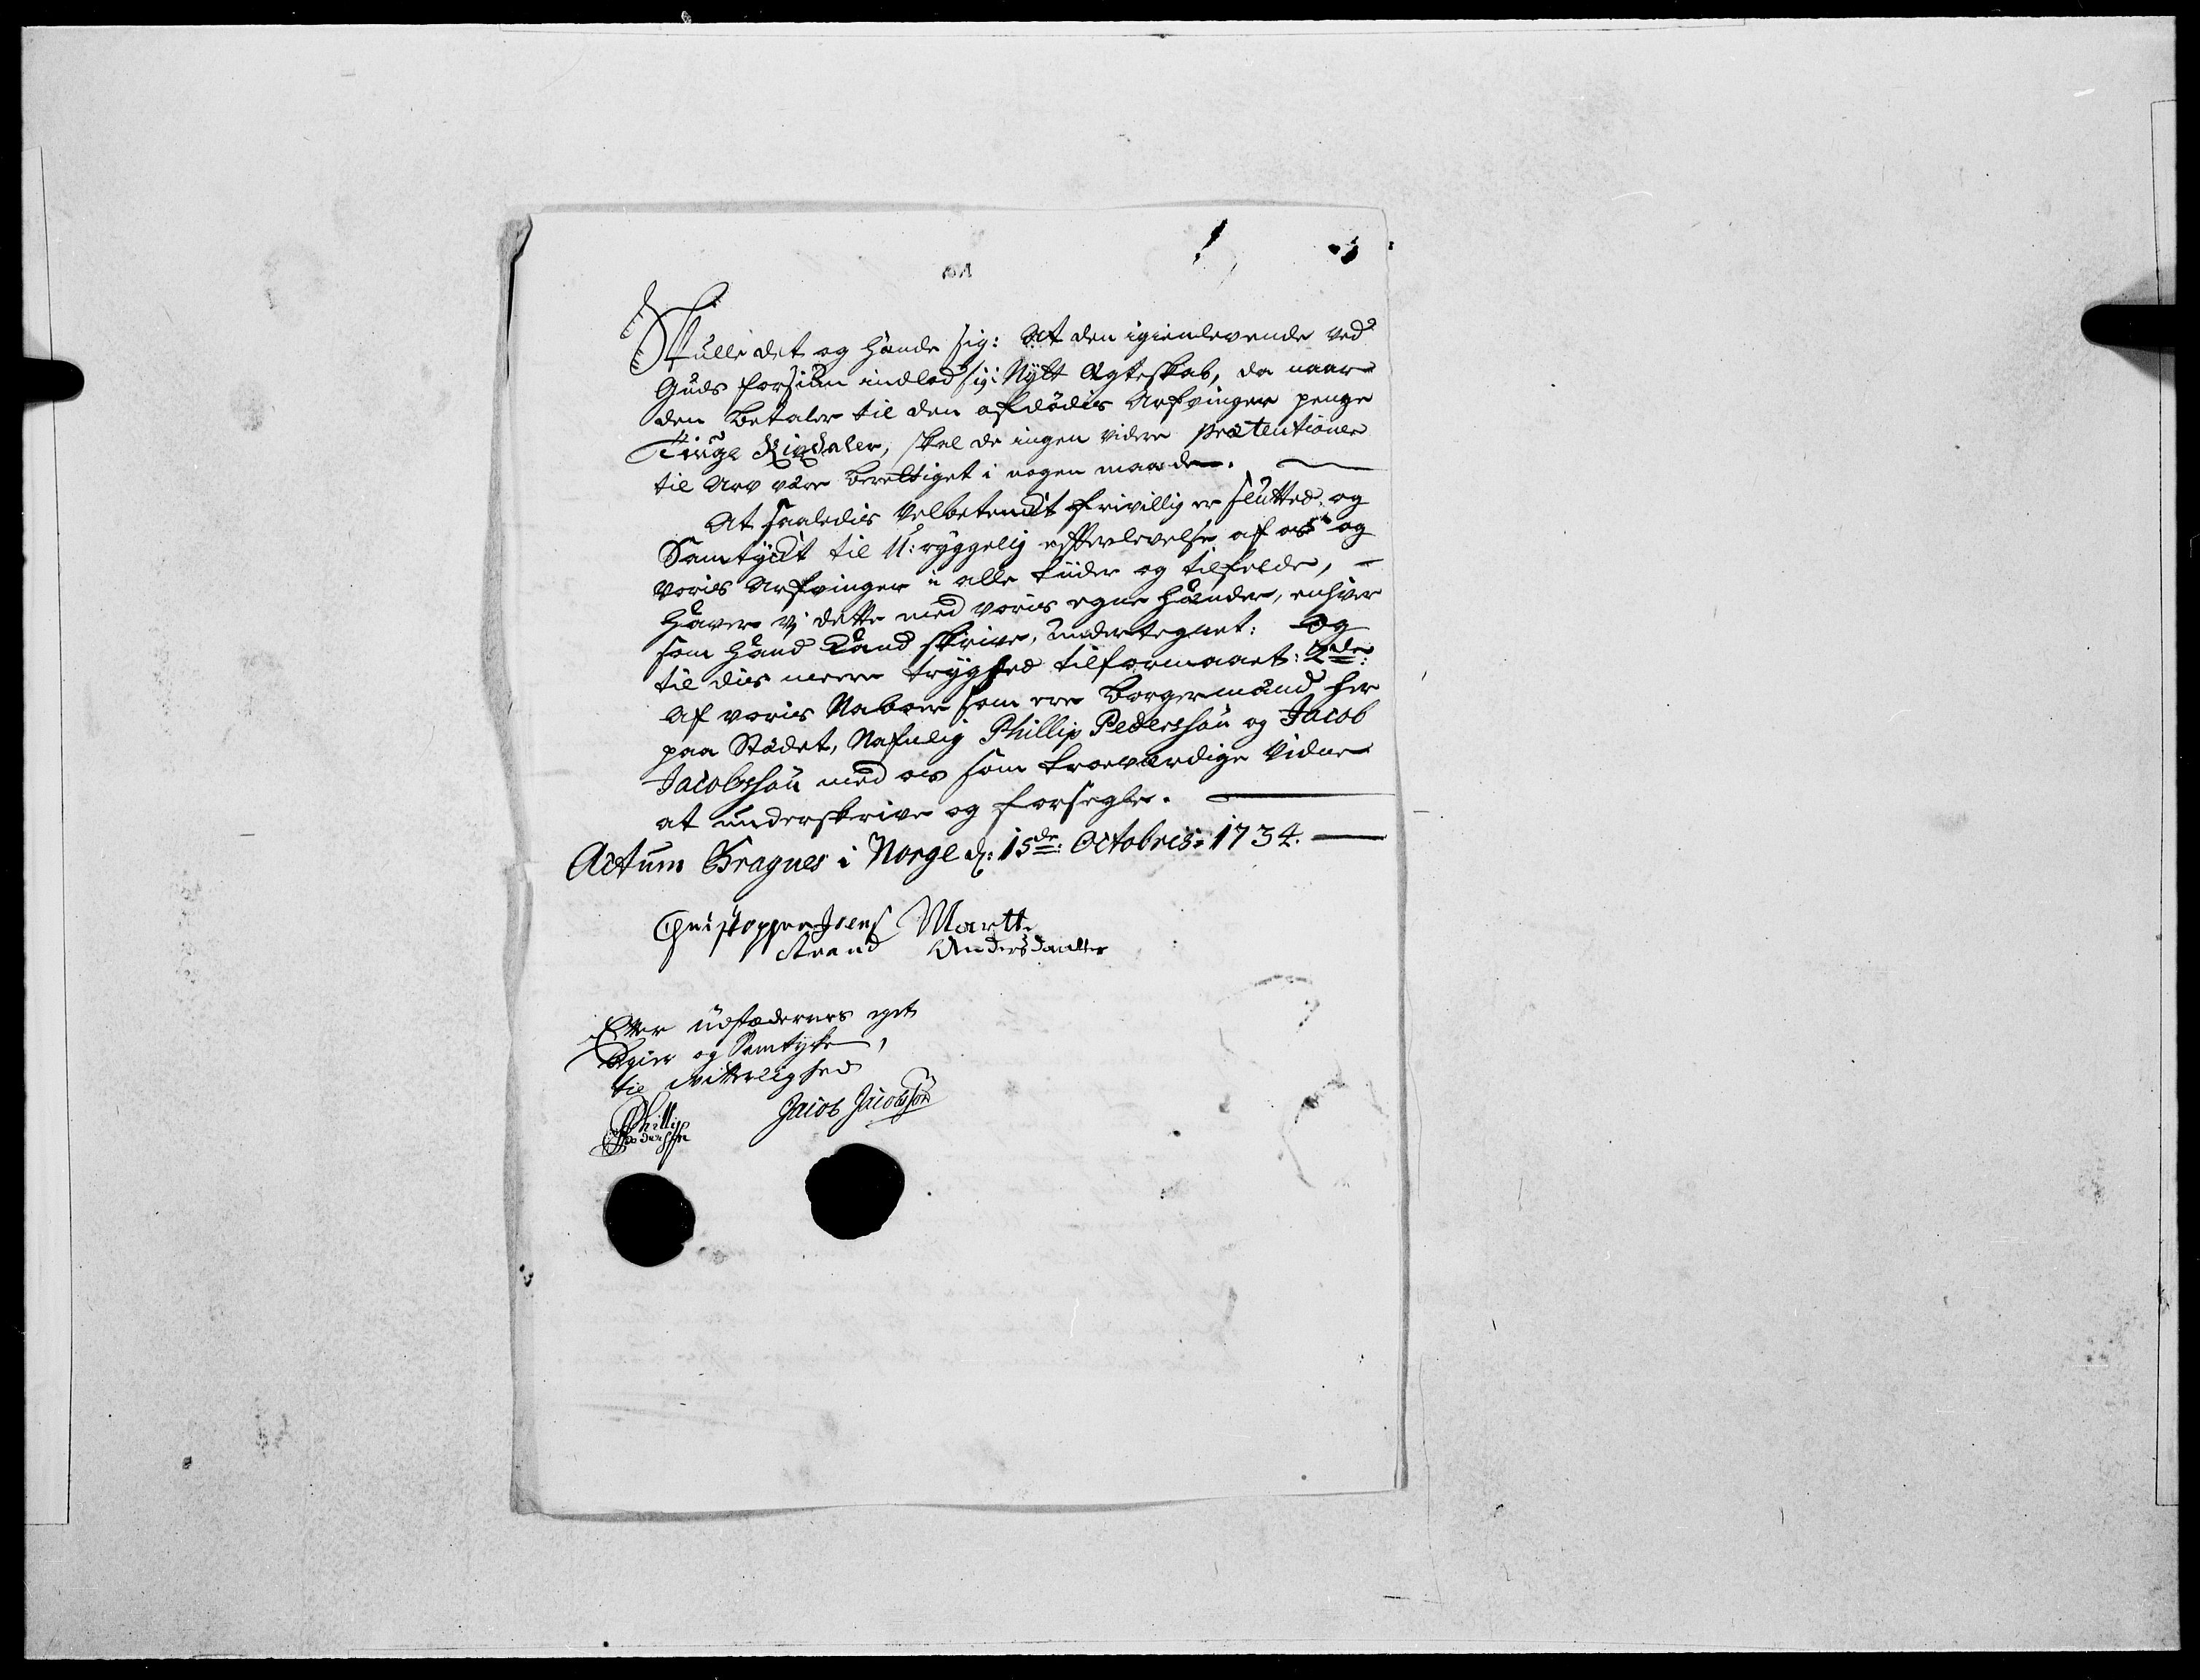 Skulle det og hænde sig: At den igienlevende ved
Guds forsiun indlod sig i Nytt Ægteskab, da naar
den betaler til den afdødis Arfvinger penge
Tiuge Rixdaler, skal de ingen videre prætentioner
til Arv være berettiget i nogen maade.
At saaledis Velbetenckt frivillig er sluttet og
Samtyckt til U:ryggelig efterlevelse af os og
voris Arfvinger i alle tiider og tilfelde,
haver vj dette med voris egne hænder, enhver
som haand kand skrive, undertegnet: og
til dis meere tryghed tilformaaet: 2de:
af voris Naboer som ere borgermænd her
paa Stædet, Nafnlig Phillip Pederssøn og Jacob
Jacobssøn med os som troeværdige Vidner
at underskrive og forsegle.
Actum Bragnes i Norge d: 15de: Octobris: 1734.
Christopher Jens Martte
Strand Andersdaatter
Efter udstædernes eget
begier og Samtykke,
til Vitterlighed
Phillip Jacob Jacobssøn
Pederssøn